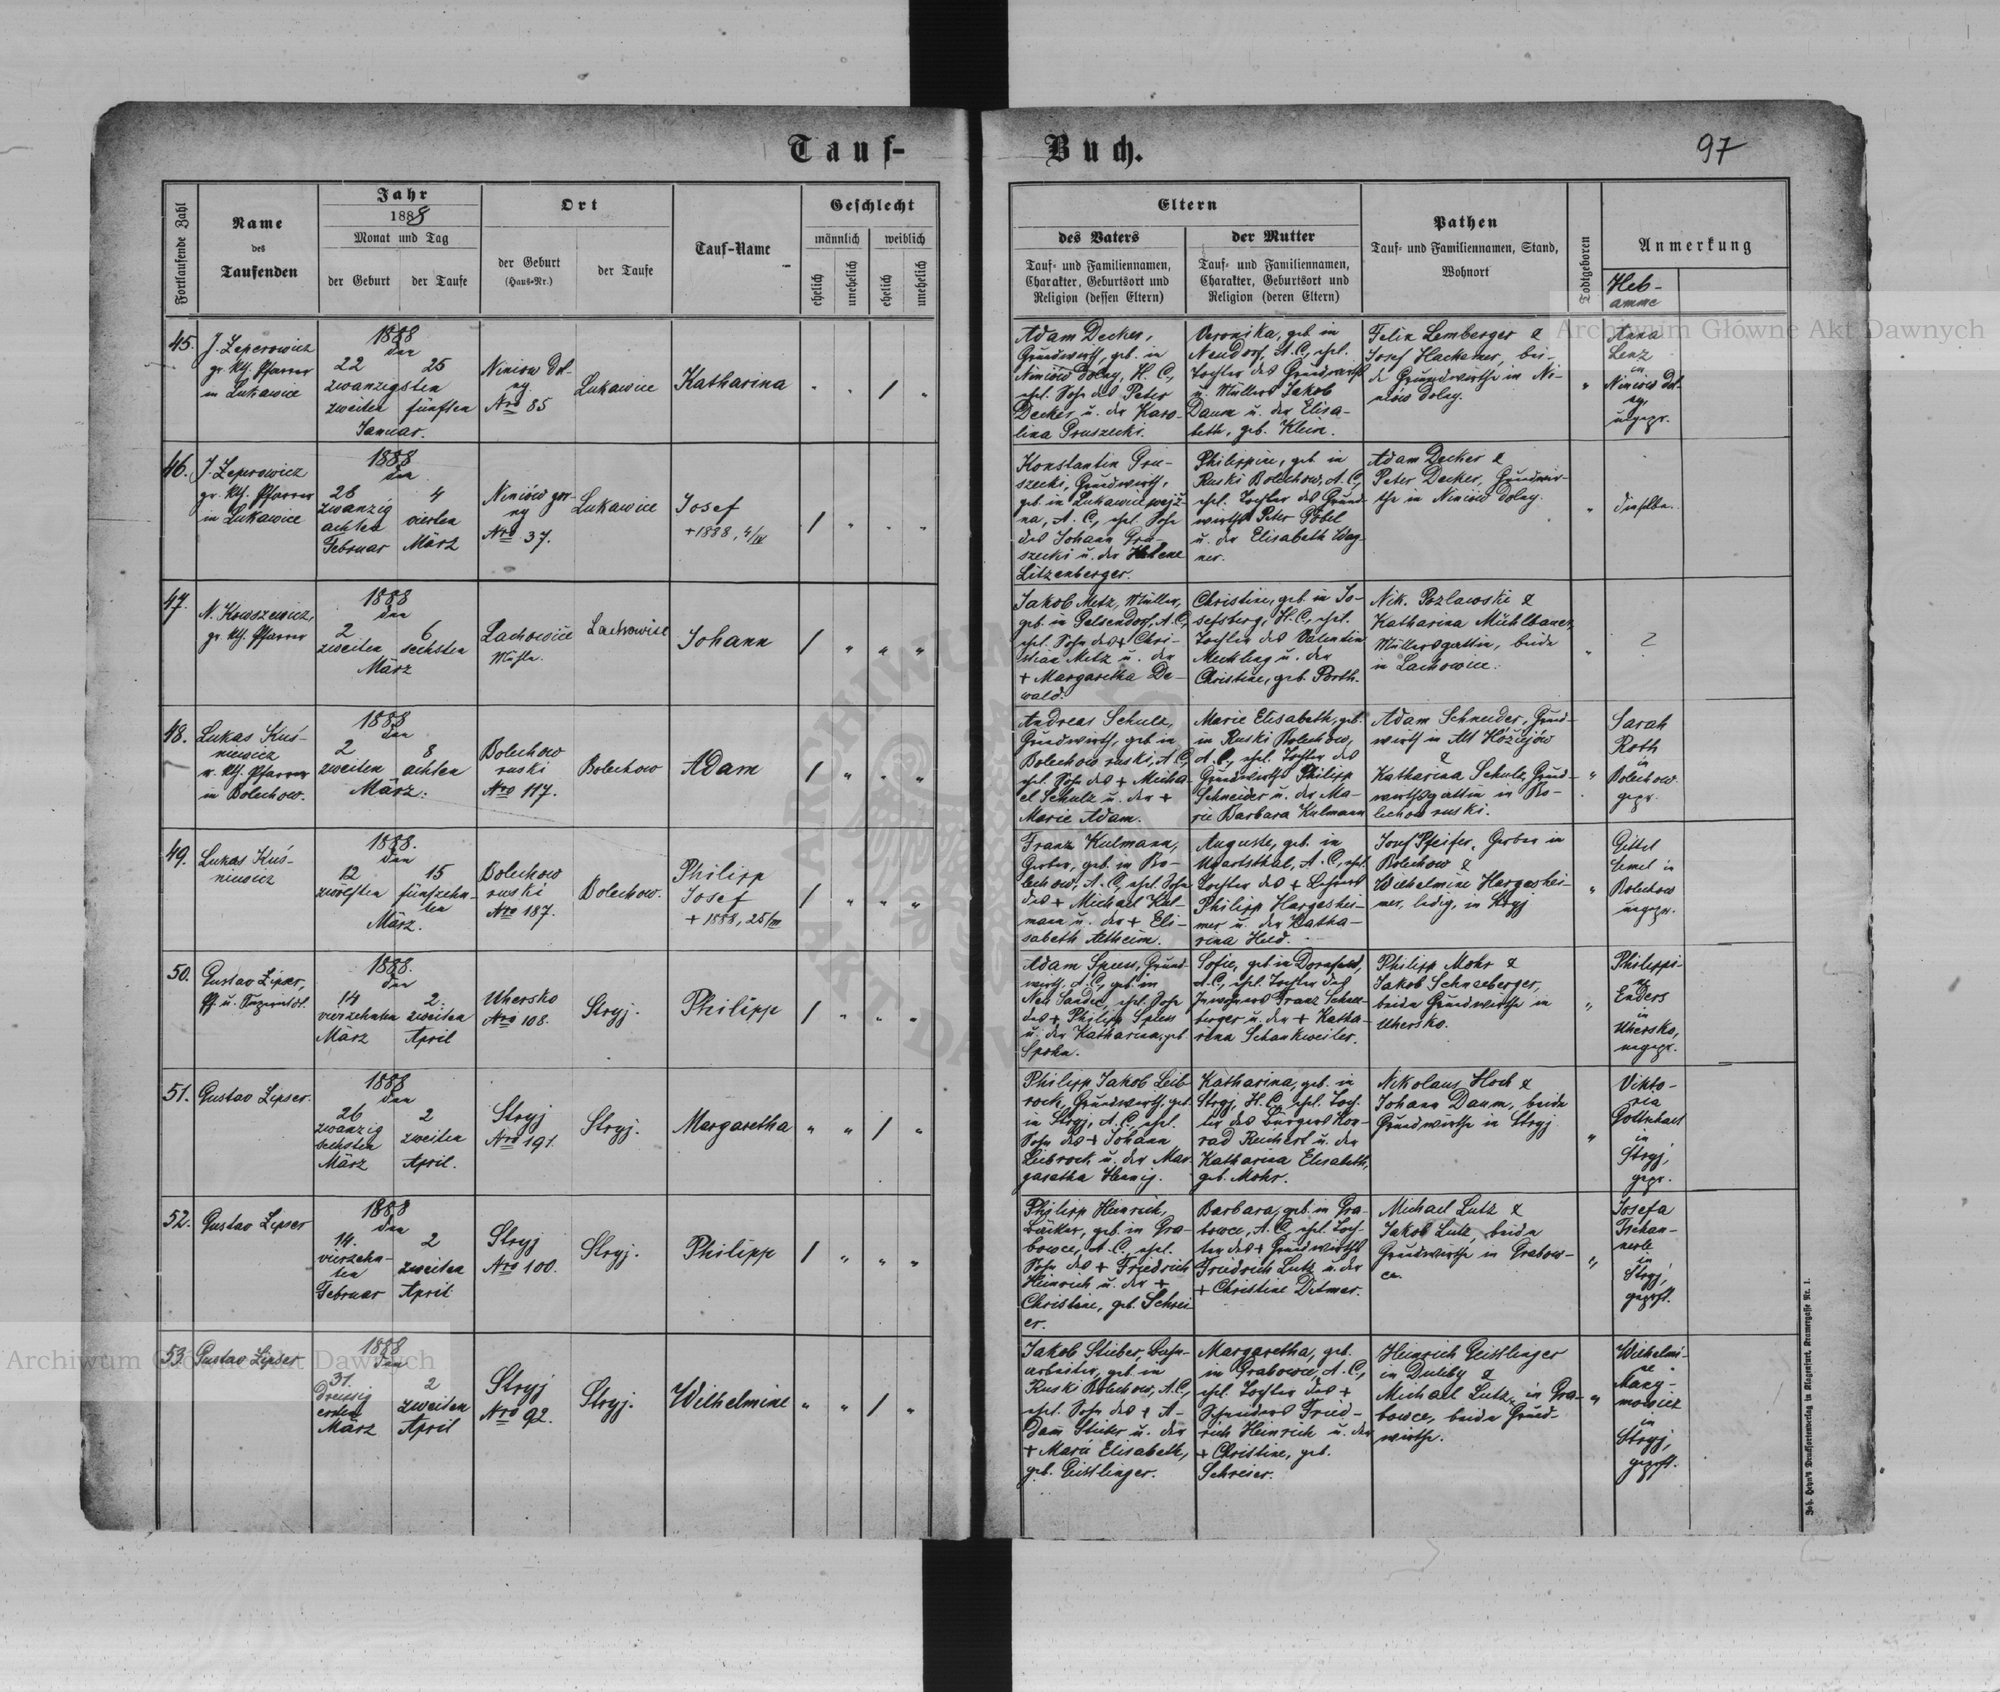 Tauf-
Buch.
97
Fortlaufende Zahl
Name
des
Taufenden
Jahr
1888
Monat und Tag
der Geburt
der Taufe
Ort
der Geburt
(Haus-Nr.)
der Taufe
Tauf-Name
Geschlecht
männlich
weiblich
ehelich
unehelich
ehelich
unehelich
Eltern
des Vaters
Tauf- und Familiennamen,
Charakter, Geburtsort und
Religion (dessen Eltern)
der Mutter
Tauf- und Familiennamen,
Charakter, Geburtsort und
Religion (deren Eltern)
Pathen
Tauf- und Familiennamen, Stand,
Wohnort
Todtgeboren
Anmerkung
Heb-
amme
45.
gr. kth. Pfarrer
in Lukawice
1888
den
22
zwanzigsten
zweiten
25
fünften
Januar.
Niniow Dol-
ny
Nro 85
Lukawice
Katharina
Adam Decker,
Grundwirth, geb. in
Niniow Dolny, H. C.,
ehel. Sohn des Peter
Decker u. der Karo-
lina Pruszecki.
Veronika, geb. in
Neudorf, A. C., ehel.
Tochter des Grundwirths
u. Müllers Jakob
Daum u. der Elisa-
beth, geb. Klein.
Felix Lemberger &
Josef Hackemer, bei-
de Grundwirthe in Ni-
niow dolny.
Anna
Lenz
in
Niniow dol-
ny,
ungepr.
46.
gr. kth. Pfarrer
in Lukawice
1888
den
28
zwanzig
achten
Februar
4
vierten
März
Niniów gor-
ny
Nro 37.
Lukawice
Josef
+ 1888, 4/IV
Konstantin Pru-
szecki, Grundwirth,
na, A. C., ehel. Sohn
des Johann Pru-
szecki u. der Helene
Litzenberger.
Philippine, geb. in
Ruski Bolechow, A. C.,
ehel. Tochter des Grund-
wirths Peter Göbel
u. der Elisabeth Wag-
ner.
Adam Decker &
Peter Decker, Grundwir-
the in Niniow dolny.
dieselbe.
47.
N. Kowszewicz,
gr. kth. Pfarrer
1888
den
2
zweiten
6
sechsten
März
Lachowice
Mühle.
Lachowice
Johann
Jakob Metz, Müller,
geb. in Gelsendorf, A. C.,
ehel. Sohn des + Chri-
stian Metz u. der
+ Margaretha De-
wald.
Christine, geb. in Jo-
sefsberg, H. C., ehel.
Tochter des Valentin
Meckling u. der
Christine, geb. Porth.
Nik. Pozlawski &
Katharina Mühlbauer,
Müllersgattin, beide
in Lachowice.
?
48.
Lukas Kuś-
niewicz
r. kth. Pfarrer
in Bolechow.
1888
den
2
zweiten
8
achten
März.
Bolechow
ruski
Nro 117.
Bolechow
Adam
Andreas Schulz,
Grundwirth, geb. in
Bolechow ruski, A. C.,
ehel. Sohn des + Micha-
el Schulz u. der +
Marie Adam.
Marie Elisabeth, geb.
in Ruski Bolechow,
A. C., ehel. Tochter des
Grundwirths Philipp
Schneider u. der Ma-
rie Barbara Kulmann
Adam Schneider, Grund-
wirth in Alt
&
Katharina Schulz, Grund-
wirthsgattin in Bo-
lechow ruski.
Sarah
Roth
in
Bolechow.
gepr.
49.
Lukas Kuś-
niewicz
1888.
den
12
zwölften
15
fünfzehn-
ten
März.
Bolechow
ruski
Nro 187.
Bolechow.
Philipp
Josef
+ 1888, 25/III
Franz Kulmann,
Gerber, geb. in Bo-
lechow, A. C., ehel. Sohn
des + Michael Kul-
mann u. der + Eli-
sabeth Altheim.
Auguste, geb. in
Ugartsthal, A. C., ehel.
Tochter des + Lehrers
Philipp Hargeshei-
mer u. der Katha-
rina Held.
Josef Pfeifer, Gerber in
Bolechow &
Wilhelmine Hargeshei-
mer, ledig, in Stryj
Gittel
in
Bolechow
ungepr.
50.
Gustav Lipser,
1888.
den
14
vierzehnten
März
2.
zweiten
April
Uhersko
Nro 108.
Stryj.
Philipp
Adam Spiess, Grund-
wirth, A. C., geb. in
Neu Sandec, ehel. Sohn
des + Philipp Spiess
u. der Katharina, geb.
Spohn.
Sofie, geb. in Dornfeld,
A. C., ehel. Tochter des
Inwohners Franz Schnee-
berger u. der + Katha-
rina Schankweiler.
Philipp Mohr &
Jakob Schneeberger,
beide Grundwirthe in
Uhersko.
Philippi-
ne
Enders
in
Uhersko,
ungepr.
51.
Gustav Lipser.
1888
den
26
zwanzig
sechsten
März
2
zweiten
April.
Stryj
Nro 191.
Stryj.
Margaretha
Philipp Jakob Leib-
rock, Grundwirth, geb.
in Stryj, A. C., ehel.
Sohn des + Johann
Leibrock u. der Mar-
garetha Hennig.
Katharina, geb. in
Stryj, H. C., ehel. Toch-
ter des Bürgers Kon-
rad Reichert u. der
Katharina Elisabeth,
geb. Mohr.
Nikolaus Hoch &
Johann Daum, beide
Grundwirthe in Stryj
Vikto-
ria
Gottschalk
in
Stryj,
gepr.
52.
Gustav Lipser
1888
den
14.
vierzehn-
ten
Februar
2
zweiten
April
Stryj
Nro 100.
Stryj.
Philipp
Philipp Heinrich,
Bäcker, geb. in Gra-
bowce, A. C., ehel.
Sohn des + Friedrich
Heinrich u. der +
Christine, geb. Schrei-
er.
Barbara, geb. in Gra-
bowce, A. C., ehel. Toch-
ter des + Grundwirths
Friedrich Lutz u. der
+ Christine Ditmer.
Michael Lutz &
Jakob Lutz, beide
Grundwirthe in Grabow-
ce.
Josefa
in
Stryj,
geprft.
53.
Gustav Lipser
1888
den
31.
Dreissig
ersten
März
2
zweiten
April
Stryj
Nro 92.
Stryj.
Wilhelmine
Jakob Stieber, Bahn-
arbeiter, geb. in
Ruski Bolechow, A. C.,
ehel. Sohn des + A-
dam Stieber u. der
+ Marie Elisabeth,
geb. Geistlinger.
Margaretha, geb.
in Grabowce, A. C.,
ehel. Tochter des +
Schneiders Fried-
rich Heinrich u. der
+ Christine, geb.
Schreier.
Heinrich Geistlinger
in Duliby &
Michael Lutz, in Gra-
bowce, beide Grund-
wirthe.
Wilhelmi-
ne
in
Stryj,
geprft.
Joh. Heyn's Drucksortenverlag in Klagenfurt, Kramergasse Nr. 1.
Archiwum Główne Akt Dawnych
Archiwum Główne Akt Dawnych
ARCHIWUM
AKT DAWNYCH